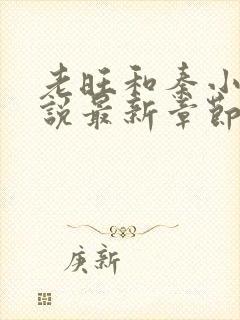 老旺和秦小
說最新章節
庚新